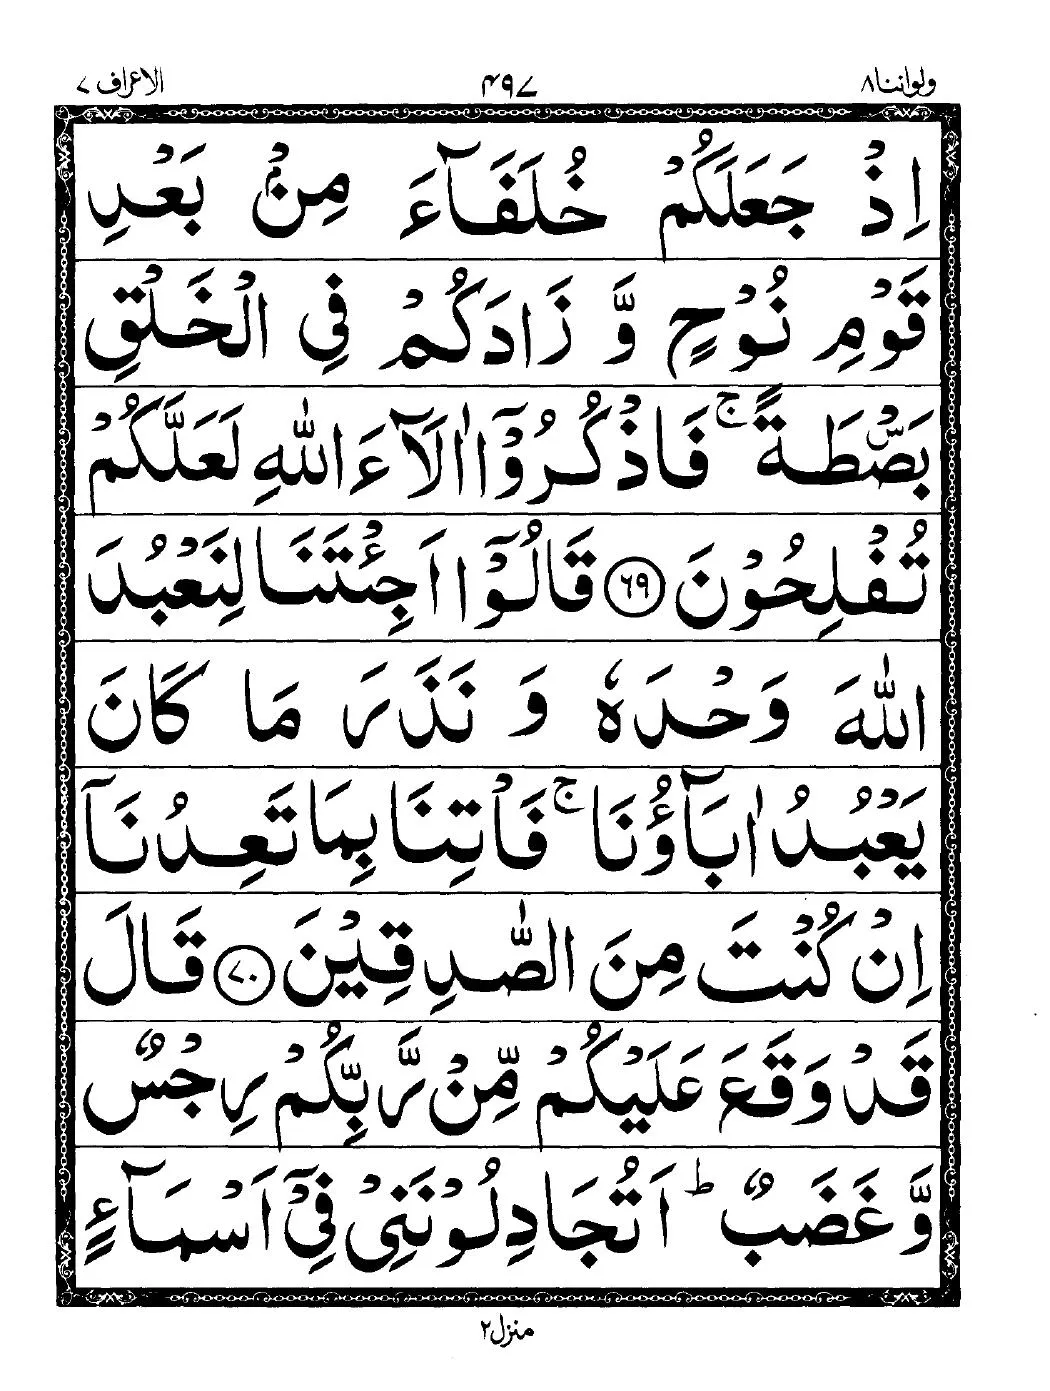 ولواننا ٨ ۴۹۷ الاعراف ٧
اِذْ جَعَلَكُمْ خُلَفَآءَ مِنْۢ بَعْدِ
قَوْمِ نُوْحٍ وَّ زَادَكُمْ فِي الْخَلْقِ
بَصْۜطَةً ۚ فَاذْكُرُوْۤا اٰلَآءَ اللّٰهِ لَعَلَّكُمْ
تُفْلِحُوْنَ ﴿۶۹﴾ قَالُوْۤا اَجِئْتَنَا لِنَعْبُدَ
اللّٰهَ وَحْدَهٗ وَ نَذَرَ مَا كَانَ
يَعْبُدُ اٰبَآؤُنَا ۚ فَاْتِنَا بِمَا تَعِدُنَاۤ
اِنْ كُنْتَ مِنَ الصّٰدِقِيْنَ ﴿۷۰﴾ قَالَ
قَدْ وَقَعَ عَلَيْكُمْ مِّنْ رَّبِّكُمْ رِجْسٌ
وَّ غَضَبٌ ؕ اَتُجَادِلُوْنَنِيْ فِيْۤ اَسْمَآءٍ
منزل ٢